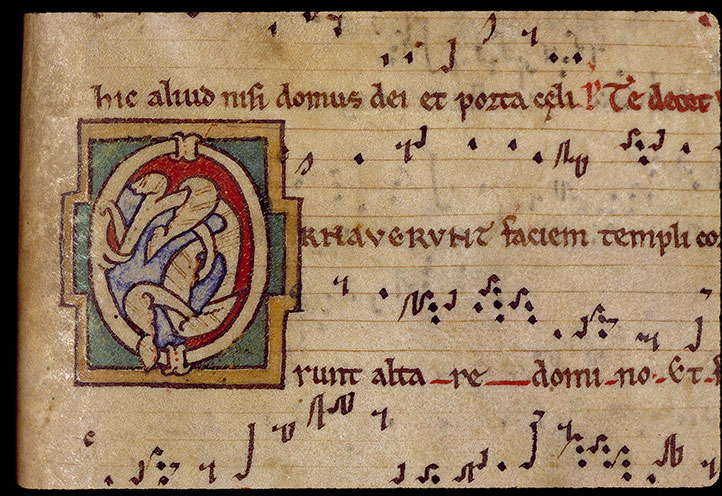 hic aliud nisi domus dei et porta cęli ℟ Te decet
ORNAVERUNT faciem templi co
runt alta re domi no. Et
e